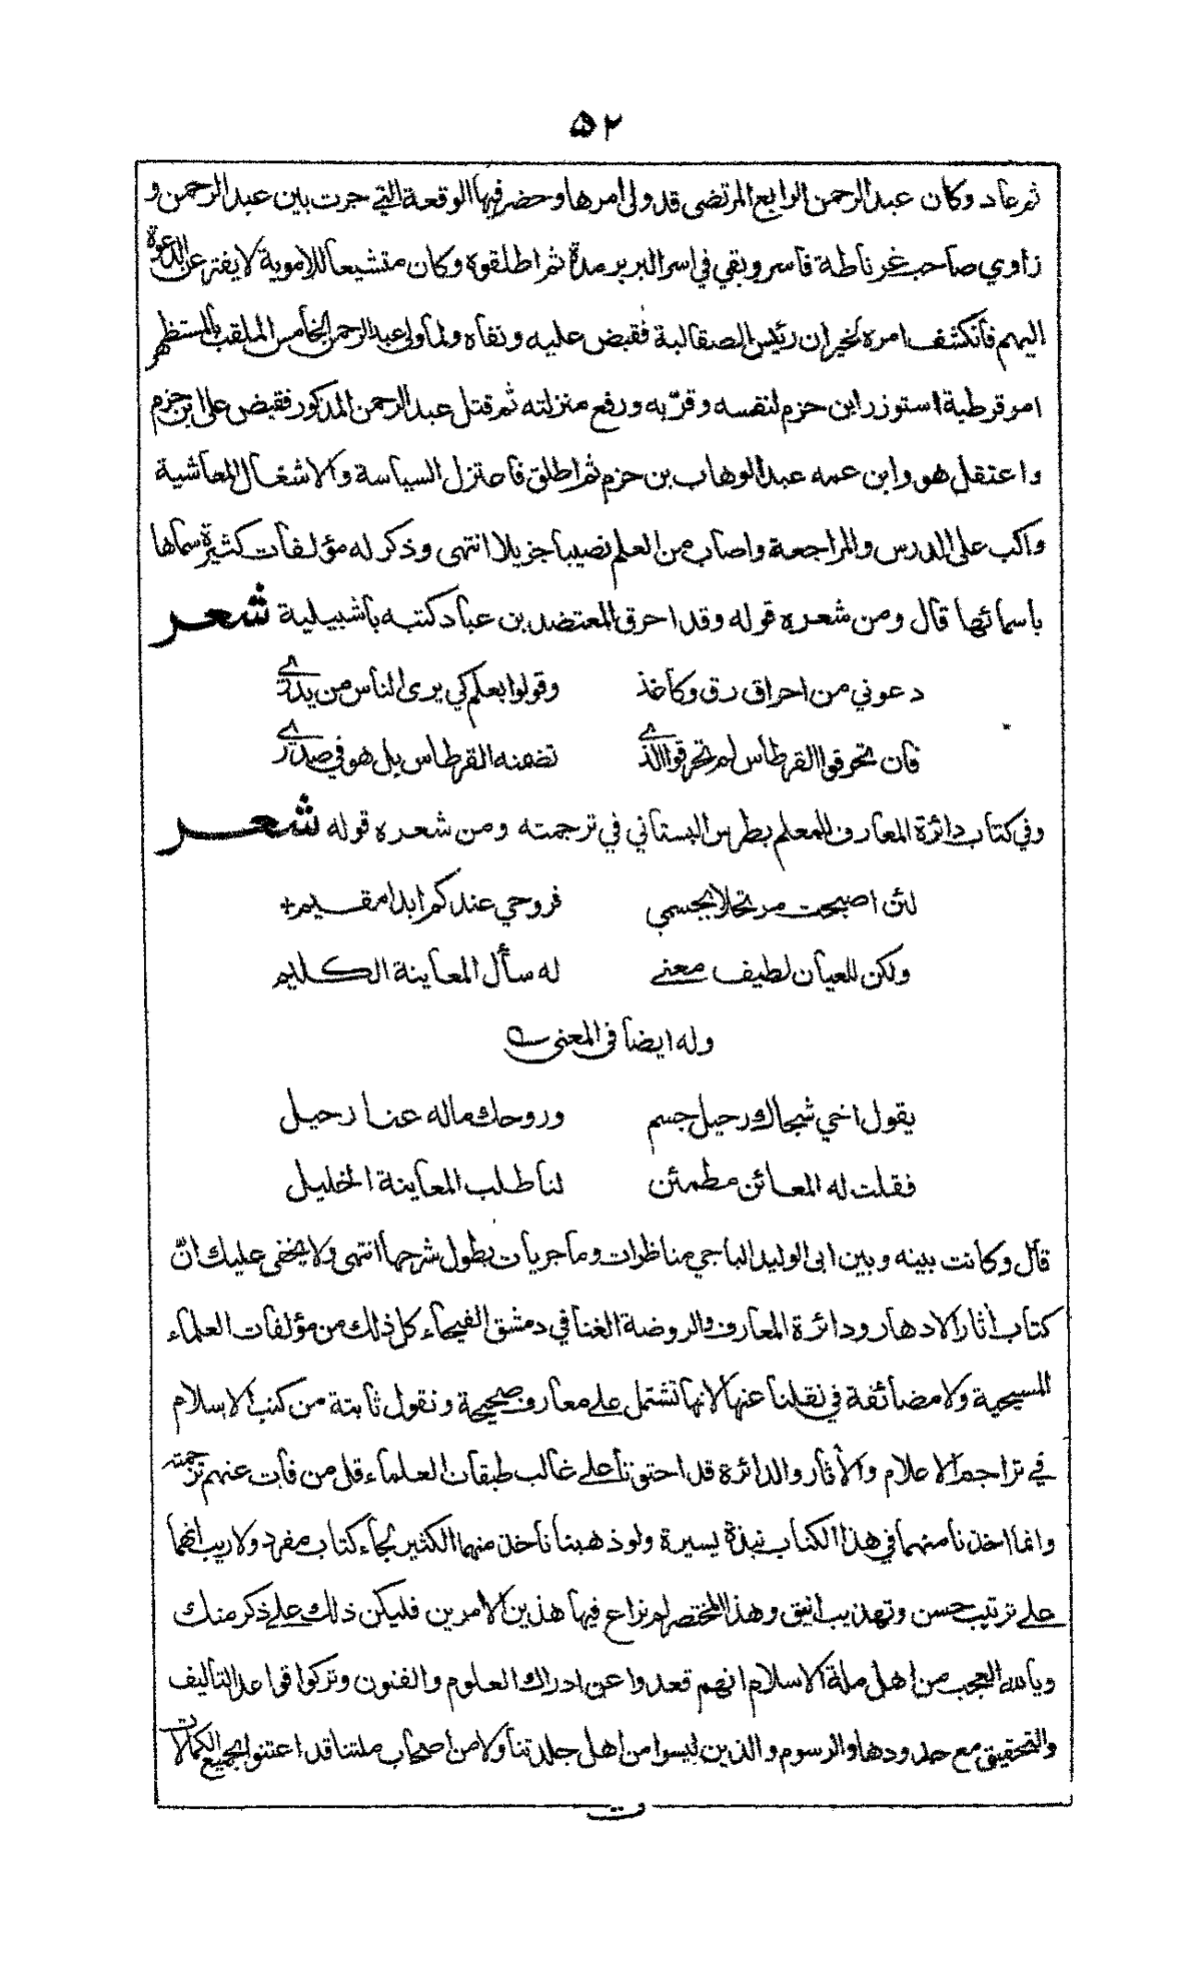 ٥٢
ثم عاد وكان عبد الرحمن الرابع المرتضى قد ولى امرها وحضر فيها الوقعة التي جرت بين عبد الرحمن و
زاوي صاحب غرناطة فاسر وبقي في اسر البربر مدة ثم اطلقوه وكان متشيعا للاموية لا يفتر عن الدعوة
اليهم فانكشف امره لخيران رئيس الصقالبة فقبض عليه ونفاه ولما ولى عبد الرحمن الخامس الملقب بالمستظهر
امر قرطبة استوزر ابن حزم لنفسه وقرّبه ورفع منزلته ثم قتل عبد الرحمن المذكور فقبض على ابن حزم
واعتقل هو وابن عمه عبد الوهاب بن حزم ثم اطلق فاعتزل السياسة والاشغال المعاشية
واكب على الدرس والمراجعة واصاب من العلم نصيبا جزيلا انتهى وذكر له مؤلفات كثيرة سماها
باسمائها قال ومن شعره قوله وقد احرق المعتضد بن عباد كتبه باشبيلية شعر
دعوني من احراق رق وكاغذ وقولوا بعلم كي يرى الناس من يدري
فان تحرقوا القرطاس لم تحرقوا الذي تضمنه القرطاس بل هو في صدري
وفي كتاب دائرة المعارف للمعلم بطرس البستاني في ترجمته ومن شعره قوله شعر
لئن اصبحت مرتحلا بجسمي فروحي عندكم ابدا مقيم
ولكن للعيان لطيف معنے له سأل المعاينة الكليم
وله ايضا فى المعنى
يقول اخي شجاك رحيل جسم وروحك ماله عنا رحيل
فقلت له المعائن مطمئن لنا طلب المعاينة الخليل
قال وكانت بينه وبين ابى الوليد الباجي مناظرات وماجريات يطول شرحها انتهى ولا يخفى عليك انّ
كتاب اٰثار الادهار ودائرة المعارف والروضة الغنا في دمشق الفيحاء كل ذلك من مؤلفات العلماء
المسيحية ولا مضائقة في نقلنا عنها لانها تشتمل علے معارف صحيحة ونقول ثابتة من كتب الاسلام
في تراجم الاعلام والاٰثار والدائرة قد احتوتا علے غالب طبقات العلماء قل من فات عنهم ترجمته
وانما اخذنا منهما في هذا الكتاب نبذة يسيرة ولو ذهبنا ناخذ منهما الكثير لجاء كتاب مفرد ولا ريب انهما
علے ترتيب حسن وتهذيب انيق وهذا المختصر لم نراع فيها هذين الامرين فليكن ذلك علے ذكر منك
ويا لله العجب من اهل ملة الاسلام انهم قعدوا عن ادراك العلوم والفنون وتركوا قواعد التاليف
والتحقيق مع حدودها والرسوم والذين ليسوا من اهل جلدتنا ولا من اصحاب ملتنا قد اعتنوا بجميع الكمالات